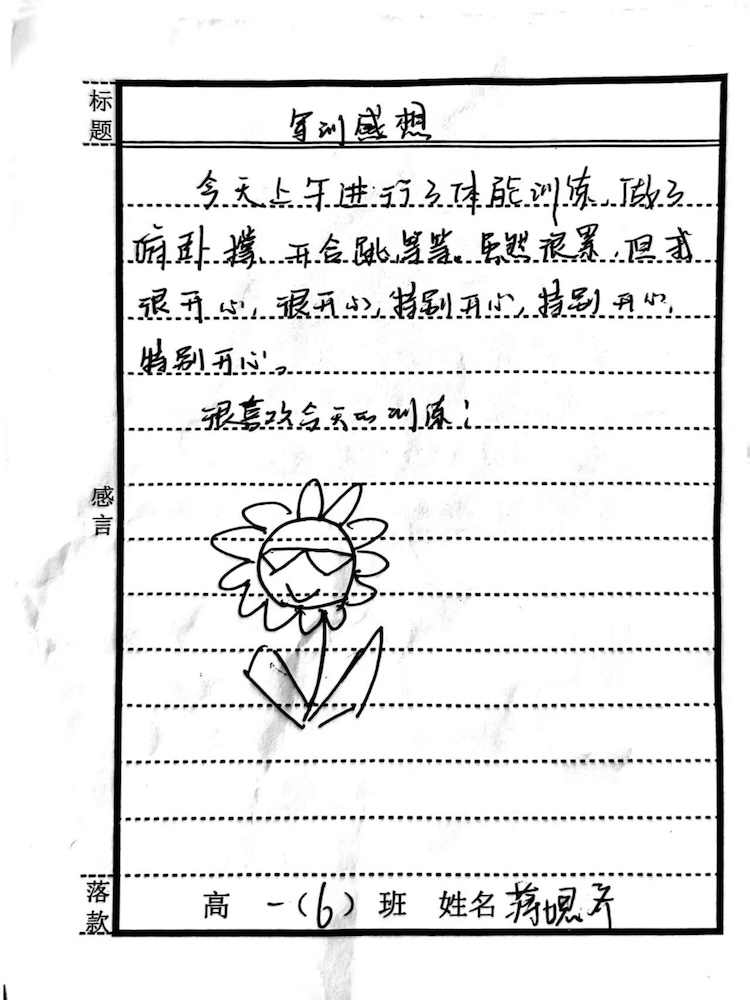 标题
军训感想
今天上午进行了体能训练，做了
俯卧撑、开合跳，等等。虽然很累，但我
很开心，很开心，特别开心，特别开心，
特别开心。
很喜欢今天的训练！
感言
落款
高一（6）班 姓名 蒋